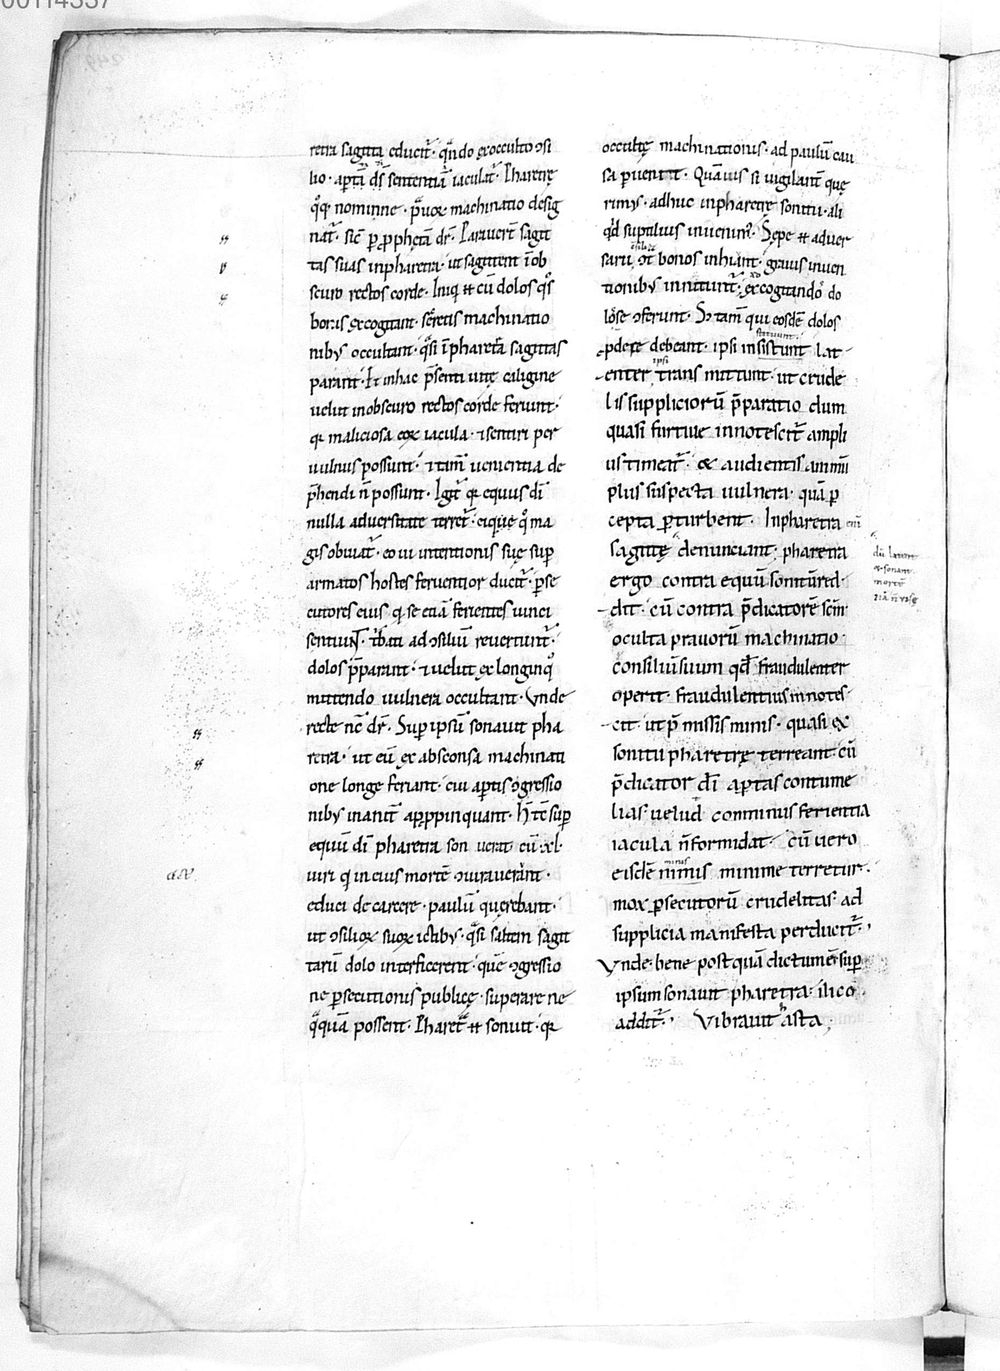 00114337
retra sagitta educit᷑. qn̄do ex occulto ɔsi
lio. aptā d̄s sententiā iaculat᷑. Pharetrę
q̊q; nomine. p̄uoꝝ machinatio desig
nat᷑. sic̄ ꝑ ꝓphetā dr̄. Parauert̄ sagit
tas suas in pharetra. ut sagittent ī ob
scuro rectos corde. Iniq̇ .n. cū dolos q̊s
bonis excogitant. sec̄retis machinatio
nibꝫ occultant. q̄si ī pharetra sagittas
parant. Et in hac p̄senti uitę caligine
uelut in obscuro rectos corde feriunt.
qꝛ maliciosa eoꝝ iacula. ⁊ sentiri per
uulnus possunt. ⁊ tam̄ uenientia de
p̄hendi n̄ possunt. Igit᷑ qꝛ equus dī
nulla aduersitate terret᷑. eique q̊ ma
gis obuiat᷑. eo ui intentionis suę sup̄
armatos hostes feruentior ducit᷑. ꝑse
cutores eius qi se etiā ferientes uinci
sentiunt. t̄bati ad ɔsiliū reuertunt᷑.
dolos p̄parant. ⁊ uelut ex longinq̊
mittendo uulnera occultant. Unde
recte nc̄ dr̄. Sup̄ ipsū sonauit pha
retra. ut eū ex absconsa machinati
one longe feriant. cui aptis ɔgressio
nibꝫ inanit᷑ aꝓpinquant. H̄ tc̄ sup̄
equū dī pharetra sonuerat. cū .xl.
uiri qi in eius mortē ɔiurauerant.
educi de carcere. paulū querebant.
ut ɔsilioꝝ suoꝝ ictibꝫ. q̄si saltem sagit
tarū dolo interficerent. quē ɔgressio
ne ꝑsecutionis publicę. superare ne
q̄quā possent. Pharetra .n. sonuit. qꝛ
occultę machinationis. ad paulū cau
sa ꝑuenit. Quāuis si uigilant̄ quę
rimꝰ. adhuc in pharetrę sonitu. ali
qd̄ suptilius inuenim᷑. Sępe .n. aduer
sarii bonos inhiant. grauis inuen
tionibꝫ innitunt᷑. excogitando do
lose ɔferunt. S; tam̄ qui eosdē dolos
ꝓdere debeant. ipsi insistunt lat
enter transmittunt. ut crude
lis suppliciorū p̄paratio dum
quasi furtiue innotescit᷑ ampli
us timeat᷑. & audientis animū
plus suspecta uulnera. quā ꝑ
cepta ꝑturbent. In pharetra enī
sagittę denunciant. pharetra
ergo contra equū sonitū red
dit. cū contra p̄dicatorē scm̄
oculta prauorū machinatio.
consiliū suum qd̄ fraudulenter
operit. fraudulentius innotes
cit. ut p̄missis minis. quasi ex
sonitu pharetrę terreant. cū
p̄dicator dī aptas contume
lias. uelud comminus ferientia
iacula n̄ formidat. cū uero
eisdē nimis minime terretur.
mox ꝑsecutorū crudelitas. ad
supplicia manifesta perducit᷑.
Unde bene postquā dictum ē sup̄
ipsum sonauit pharetra. ilico
addit᷑. Vibrauit hasta.